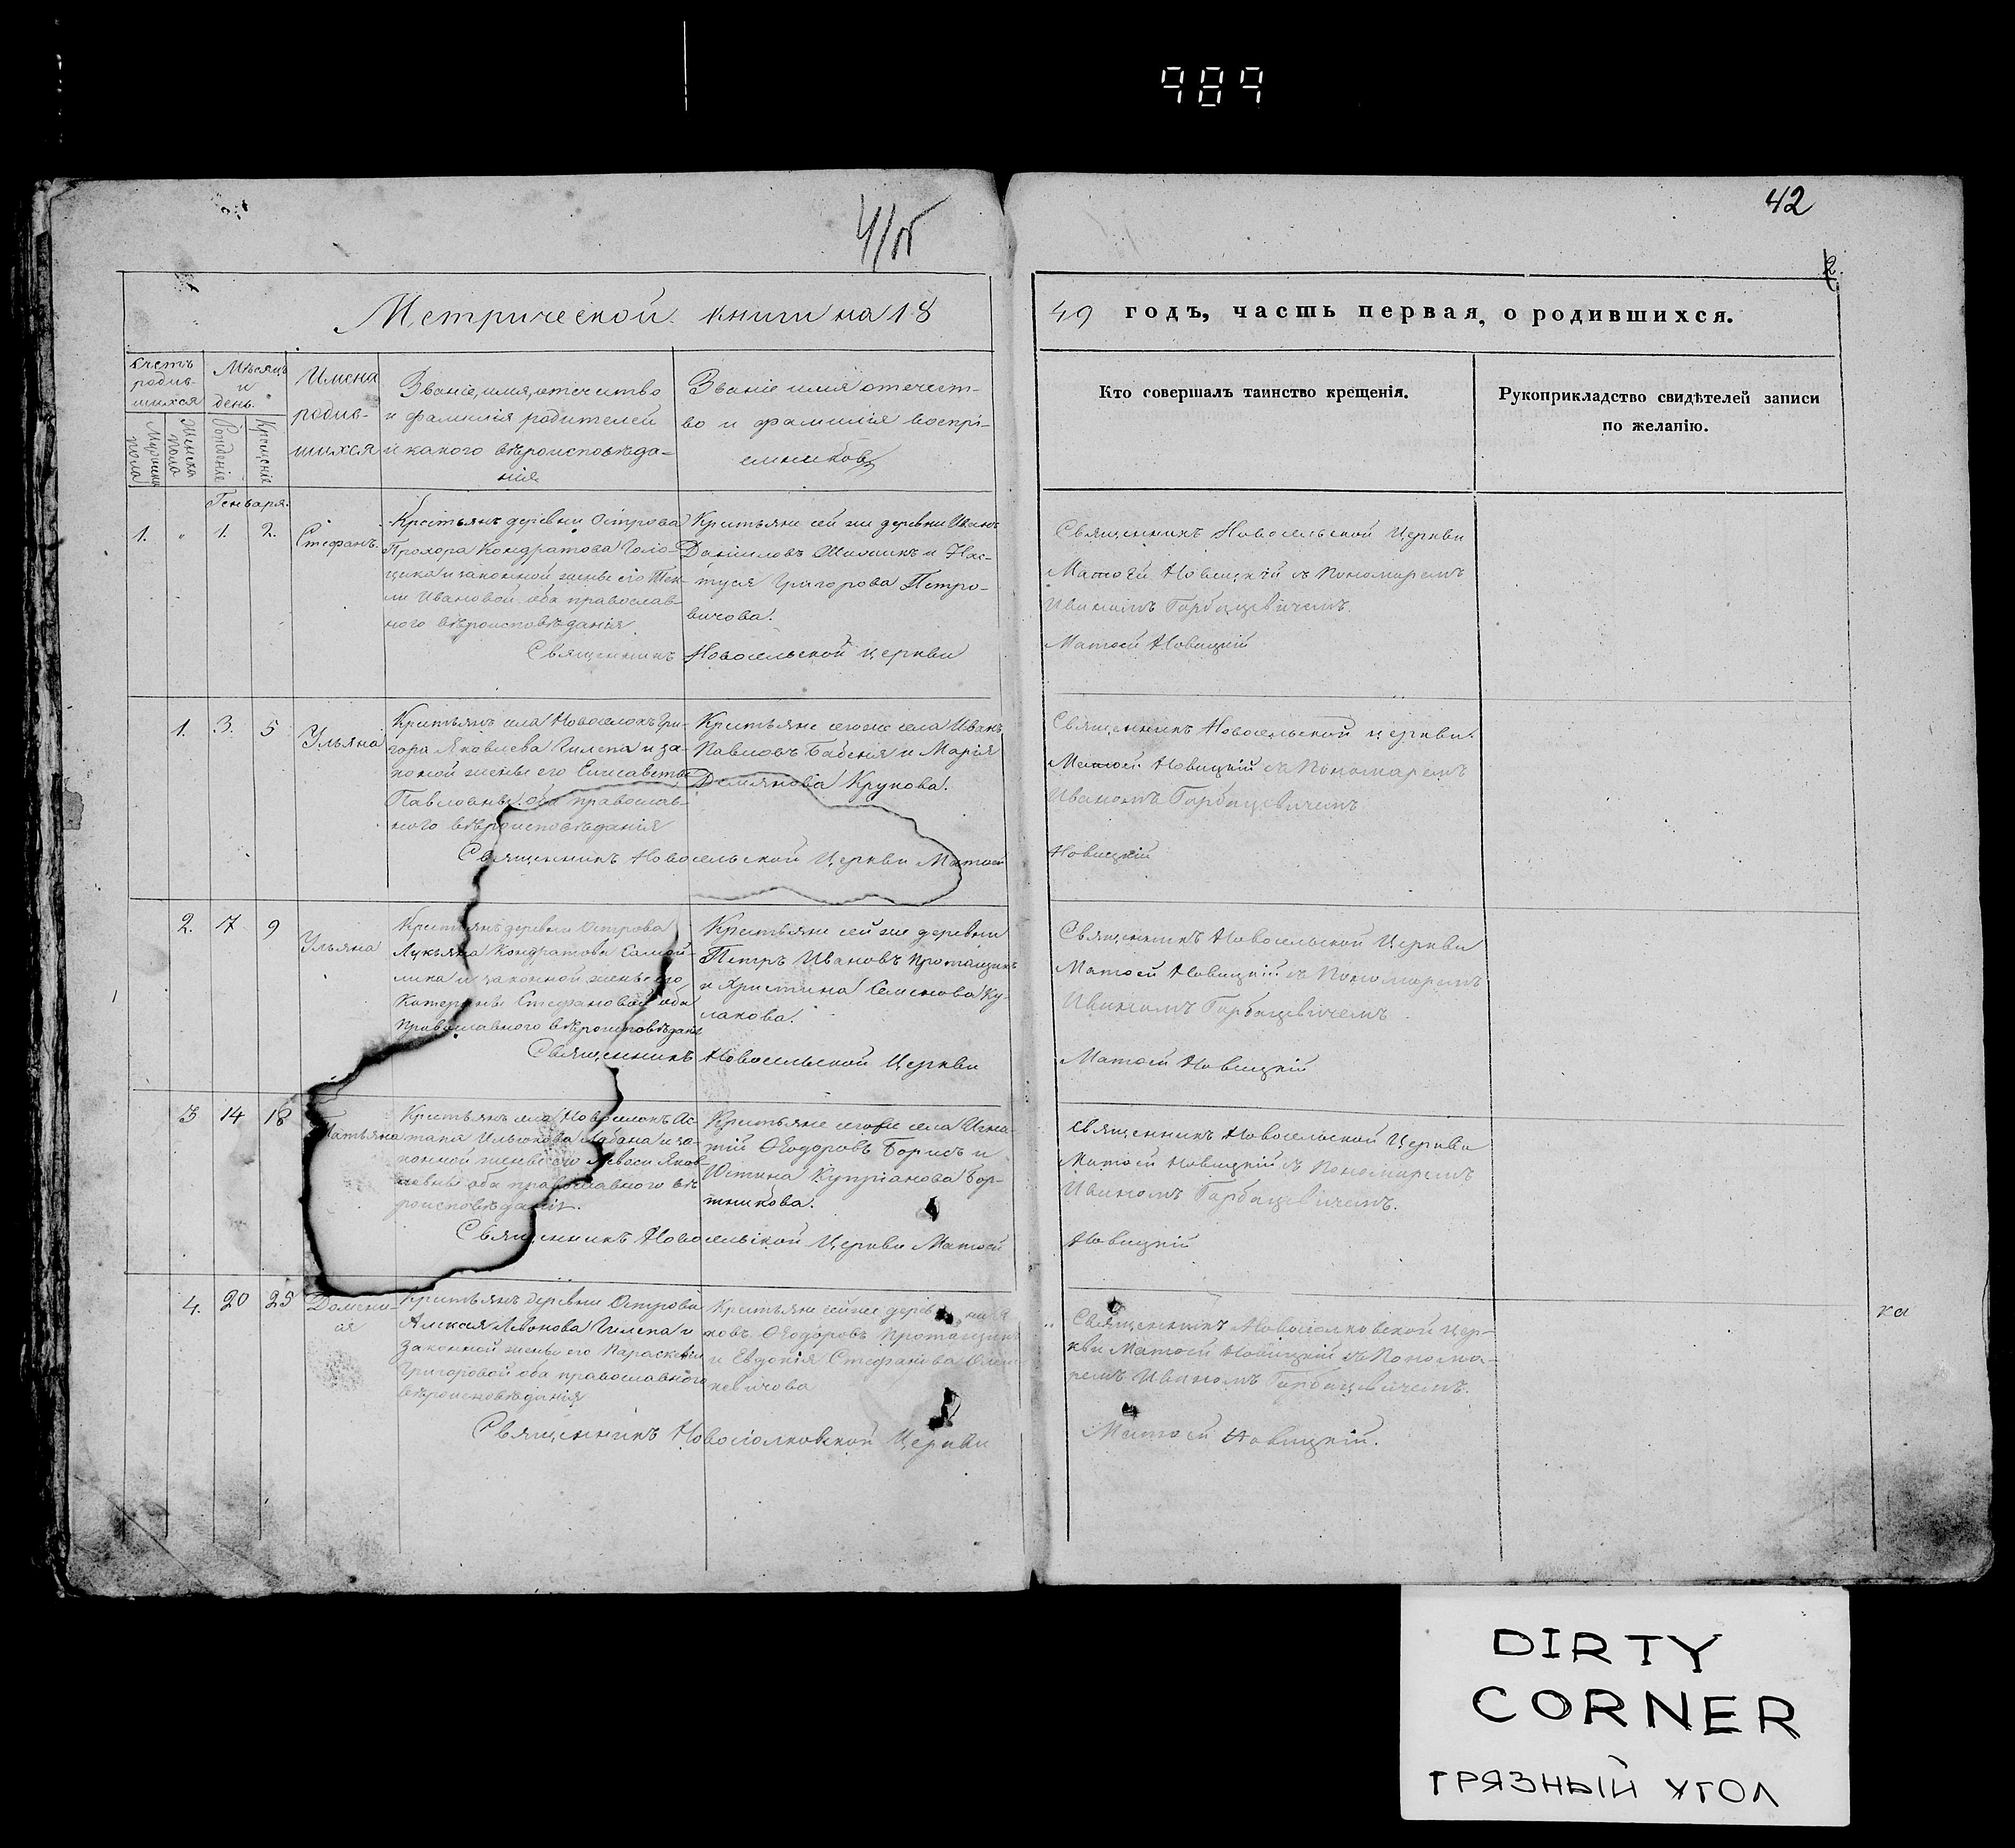 989
42
Метрической книги на 18
49 годъ, часть первая, о родившихся.
Счетъ родив-шихся
Мѣсяцъ и день.
Имена родив-шихся
Званіе, имя, отечество
и фамилія родителей
и какого вѣроисповѣда-
нія
Званіе имя отечест-
во и фамилія воспрі-
емниковъ
Кто совершалъ таинство крещенія.
Рукоприкладство свидѣтелей записи
по желанію.
Мужска пола
Женска пола
Рожденіе
Крещеніе
Генваря.
1. " 1. 2. Стефанъ.
Крестьянъ деревни Острова
Прохора Кондратова Голо-
щика и законной жены его Тек-
ли Ивановой оба православ-
ного вѣроисповѣданія
Крестьяне сей же деревни Иванъ
Даніиловъ и Нас-
туся Григорова Петро-
вичова.
Священникъ Новосельской Церкви
Матѳей Новицкій съ Пономаремъ
Иваномъ Горбацевичемъ.
Священникъ Новосельской церкви
Матѳей Новицкій
1. 3. 5 Ульяна
Крестьянъ села Новоселокъ Гри-
гора Яковлева Гилепа и за-
коной жены его Елисаветы
Павловны оба православ-
ного вѣроисповѣданія
Крестьяне сегоже села Иванъ
Павловъ Бабеня и Марія
Демянова Крукова.
Священникъ Новосельской церкви.
Матѳей Новицкій съ Пономаремъ
Иваномъ Горбацевичемъ
Священникъ Новосельской Церкви Матѳей
Новицкій
2. 7 9 Ульяна
Крестьянъ деревни Острова
Лукьяна Кондратова Самой-
лика и законной жены его
Катерины Стефановой оба
православного вѣроисповѣдан
Крестьяне сей же деревни
Петръ Ивановъ Протащикъ
и Христина Семенова Ку-
лакова.
Священникъ Новосельской Церкви
Матѳей Новицкій съ Пономаремъ
Иваномъ Горбацевичемъ
Священникъ Новосельской Церкви
Матѳей Новицкій
3 14 18 Татьяна
Крестьянъ села Новоселокъ Ас-
тапа Ильюкова Лабана и за-
конной жены его Яков-
левны оба православного вѣ
роисповѣданія.
Крестьяне сегоже села Игна-
тій Ѳеодоровъ Борисъ и
Юстина Купріанова Бор-
тникова.
Священникъ Новосельской Церкви
Матѳей Новицкій съ Пономаремъ
Иваномъ Горбацевичемъ.
Священникъ Новосельской Церкви Матѳей
Новицкій
4. 20 25 Домени-
ия
Крестьянъ деревни Острова
Алексія Леонова Гилепа и
законной жены его Параскевы
Григоровой оба православного
вѣроисповѣданія
Крестьяне сейже дерев
ковъ Ѳеодоровъ Протащик
и Евдокія Стефанова
кевичова
Священникъ Новоселковской цер-
кви Матѳей Новицкій съ Понома-
ремъ Иваномъ Горбацевичемъ.
ка
Священникъ Новоселковской Церкви
Матѳей Новицкій.
DIRTY
CORNER
ГРЯЗНЫЙ УГОЛ